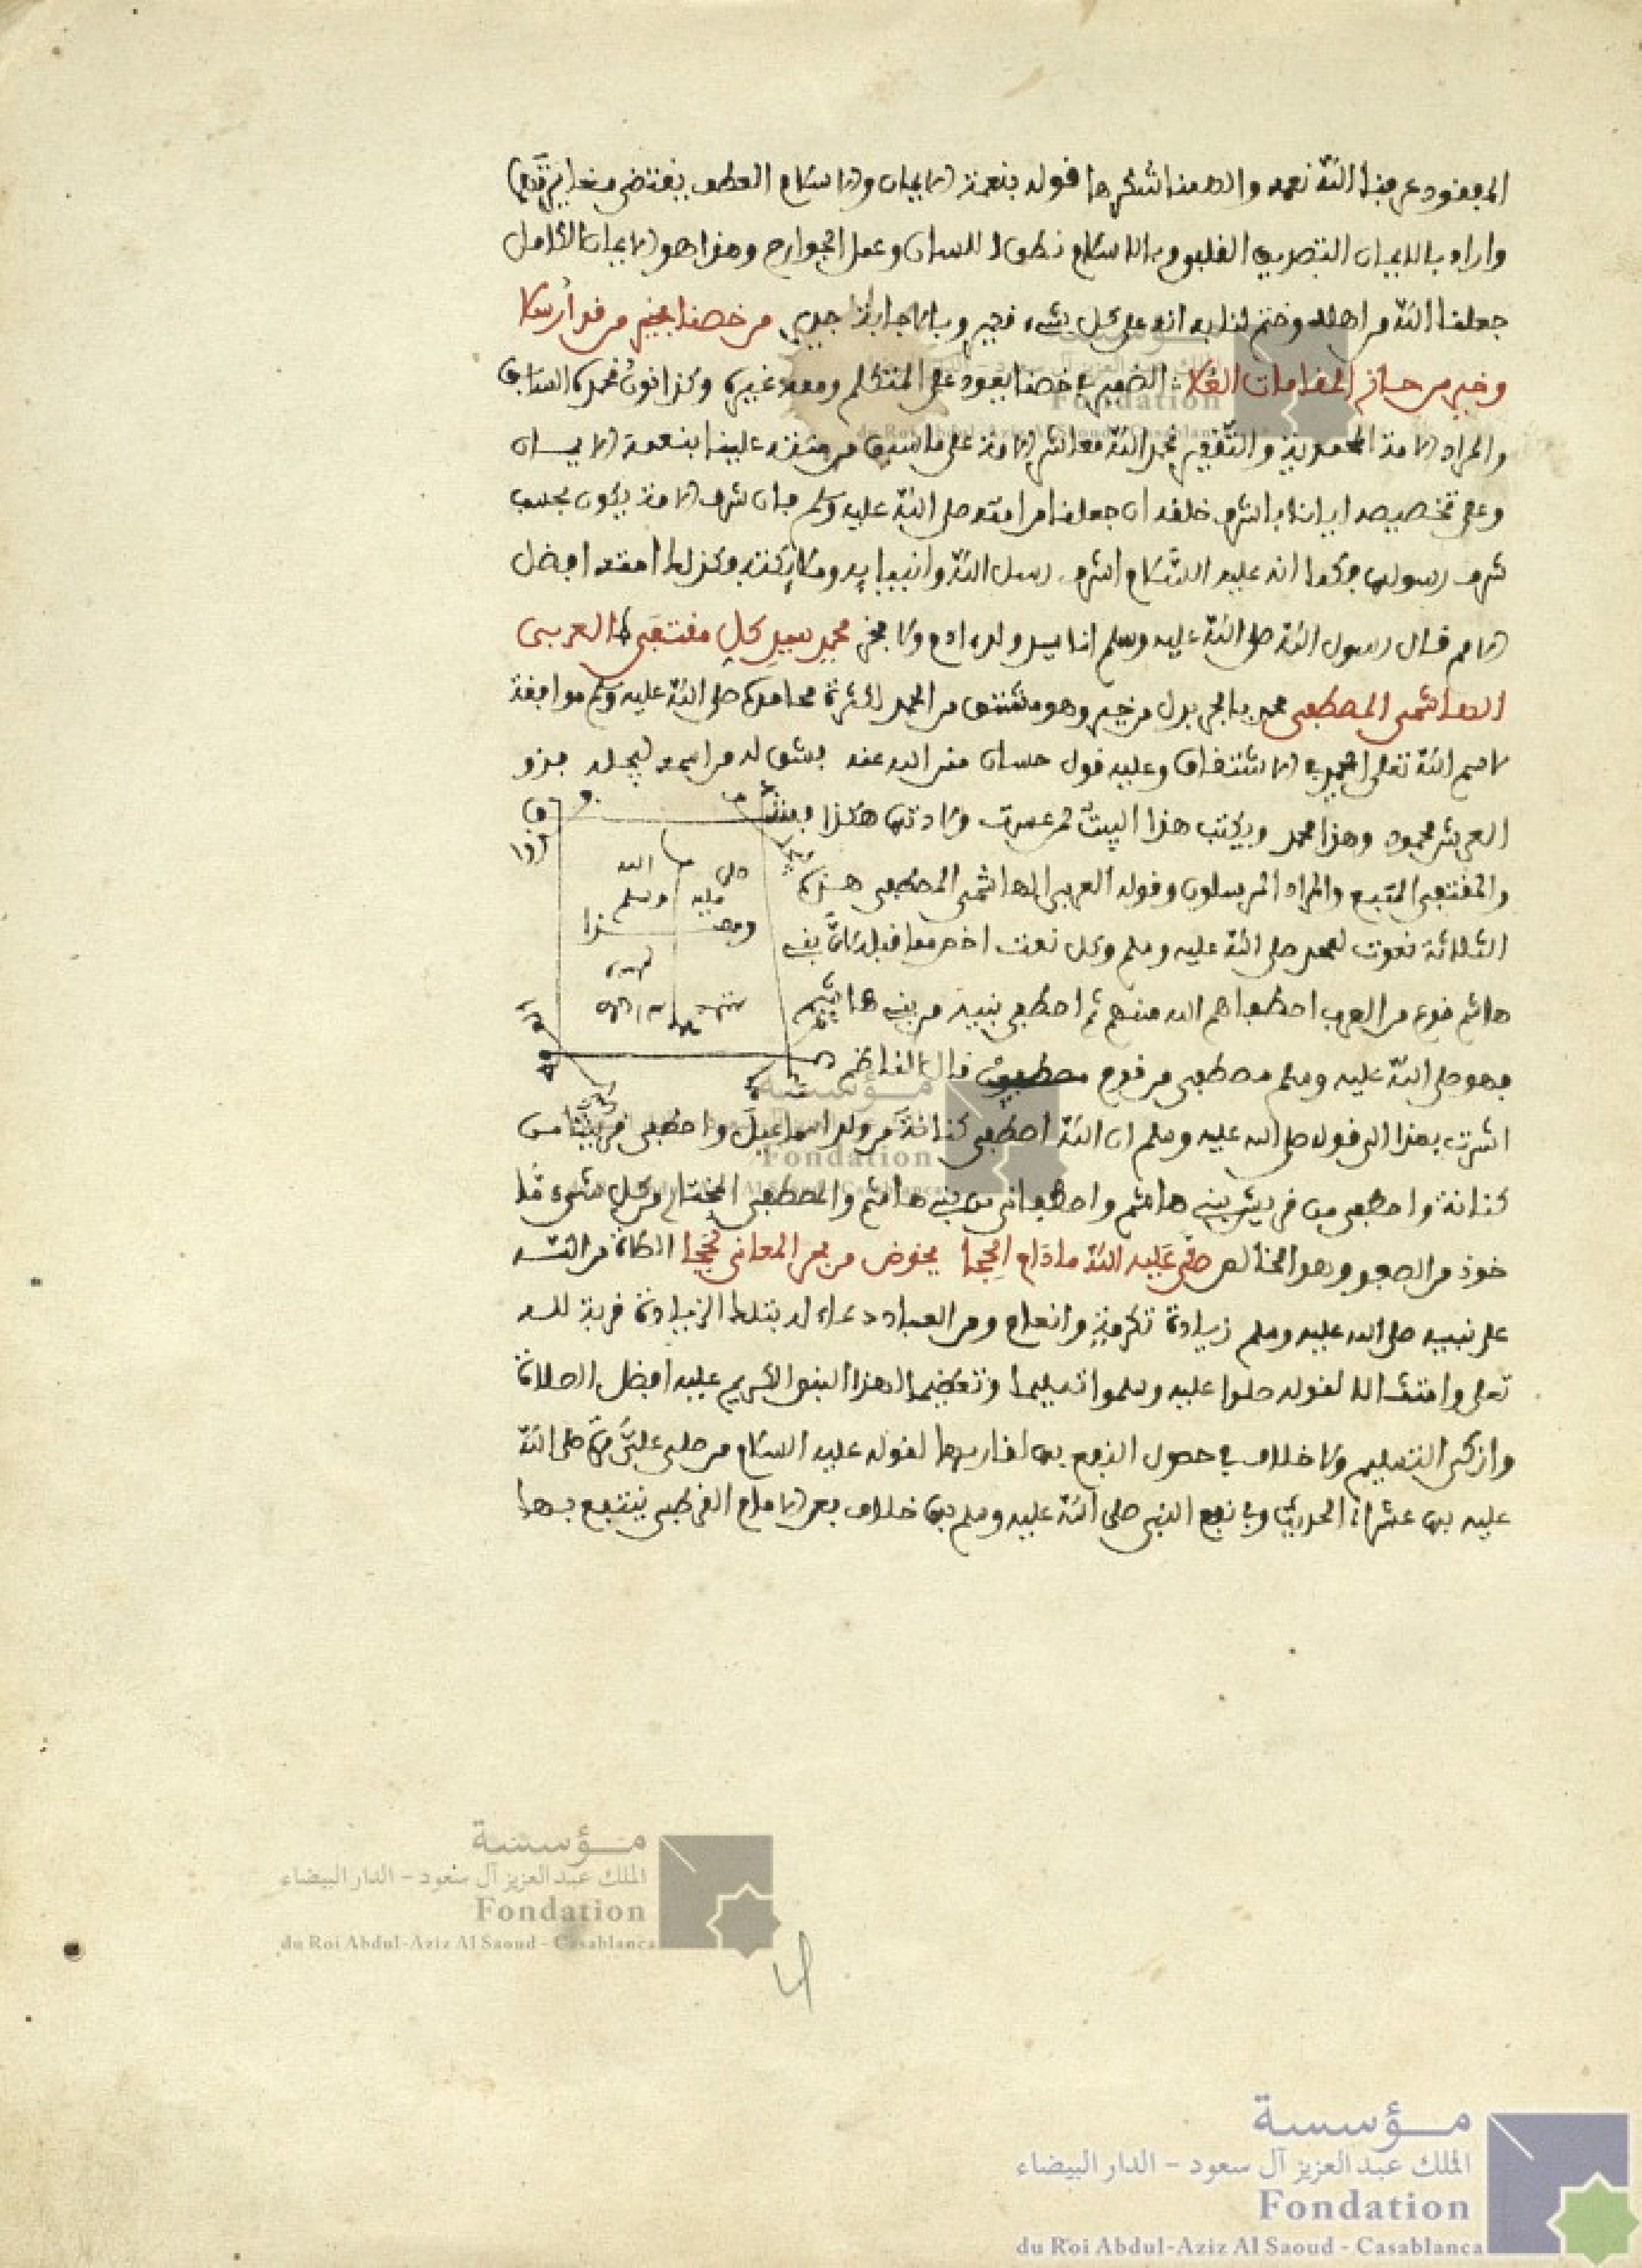 المفقود عرفنا الله نعمه والهمنا لشكرها قوله بنعمة الايمان والاسلام العطف يقتضي مغايرة
واراد بالايمان التصديق القلبي وبالاسلام نطق اللسان وعمل الجوارح وهذا هو الايمان الكامل
جعلنا الله من اهله وختم لنا به انه على كل شيء قدير وبالاجابة جدير من خصنا بخير من قد ارسلا
وخير من حاز المقامات العلا الضمير في خصنا يعود على المتكلم ومعه غيره وكذا نون نحمده السابق
والمراد الامة المحمدية والتقدير نحمد الله معاشر الامة على ما سبق من مننه علينا بنعمة الايمان
وعلى تخصيصه ايانا باشرف خلقه ان جعلنا من امته صلى الله عليه وسلم فان شرف الامة يكون بحسب
شرف رسولها فكما انه عليه السلام اشرف رسل الله وانبيايه وملائكته وكذلك امته افضل
الامم قال رسول الله صلى الله عليه وسلم انا سيد ولد ادم ولا فخر محمد سيد كل مقتفى العربي
الهاشمي المصطفى محمد بالجر بدل من خير وهو مشتق من الحمد لكثرة محامده صلى الله عليه وسلم موافقة
لاسم الله تعلى في الاشتقاق وعليه قول حسان رضي الله عنه وشق له من اسمه ليجله فذو
العرش محمود وهذا محمد ويكتب هذا البيت لمن عسرت ولادتها هكذا
والمقتفى المتبع والمراد المرسلون وقوله العربي الهاشمي المصطفى هذه
الثلاثة نعوت لمحمد صلى الله عليه وسلم وكل نعت اخص مما قبله لان بني
هاشم قوم من العرب اصطفاهم الله منهم ثم اصطفى نبيه من بني هاشم
فهو صلى الله عليه وسلم مصطفى من قوم مصطفين قال الناظم
صلى الله
عليه وسلم
وهذا
اشرت بهذا الى قوله صلى الله عليه وسلم ان الله اصطفى كنانة من ولد اسماعيل واصطفى قريشا من
كنانة واصطفى من قريش بني هاشم واصطفاني من بني هاشم والمصطفى المختار من كل شيء
خوذ من الصفو وهو الخالص صلى عليه الله ما دام الحجا يخوض من بحر المعاني لججا الصلاة من الله
على نبيه صلى الله عليه وسلم زيادة تكرمة وانعام ومن العباد دعاء له بتلك الزيادة قربة لله
تعلى وامتثالا لقوله صلوا عليه وسلموا تسليما وتعظيما لهذا النبي الكريم عليه افضل الصلاة
وازكى التسليم ولا خلاف في حصول النفع بها لقاريها لقوله عليه السلام من صلى علي مرة صلى الله
عليه بها عشرا الحديث وفي نفع النبي صلى الله عليه وسلم بها خلاف فعن الامام القرطبي ينتفع بها
مؤسسة
الملك عبد العزيز آل سعود - الدار البيضاء
Fondation
du Roi Abdul-Aziz Al Saoud - Casablanca
مؤسسة
الملك عبد العزيز آل سعود - الدار البيضاء
Fondation
du Roi Abdul-Aziz Al Saoud - Casablanca